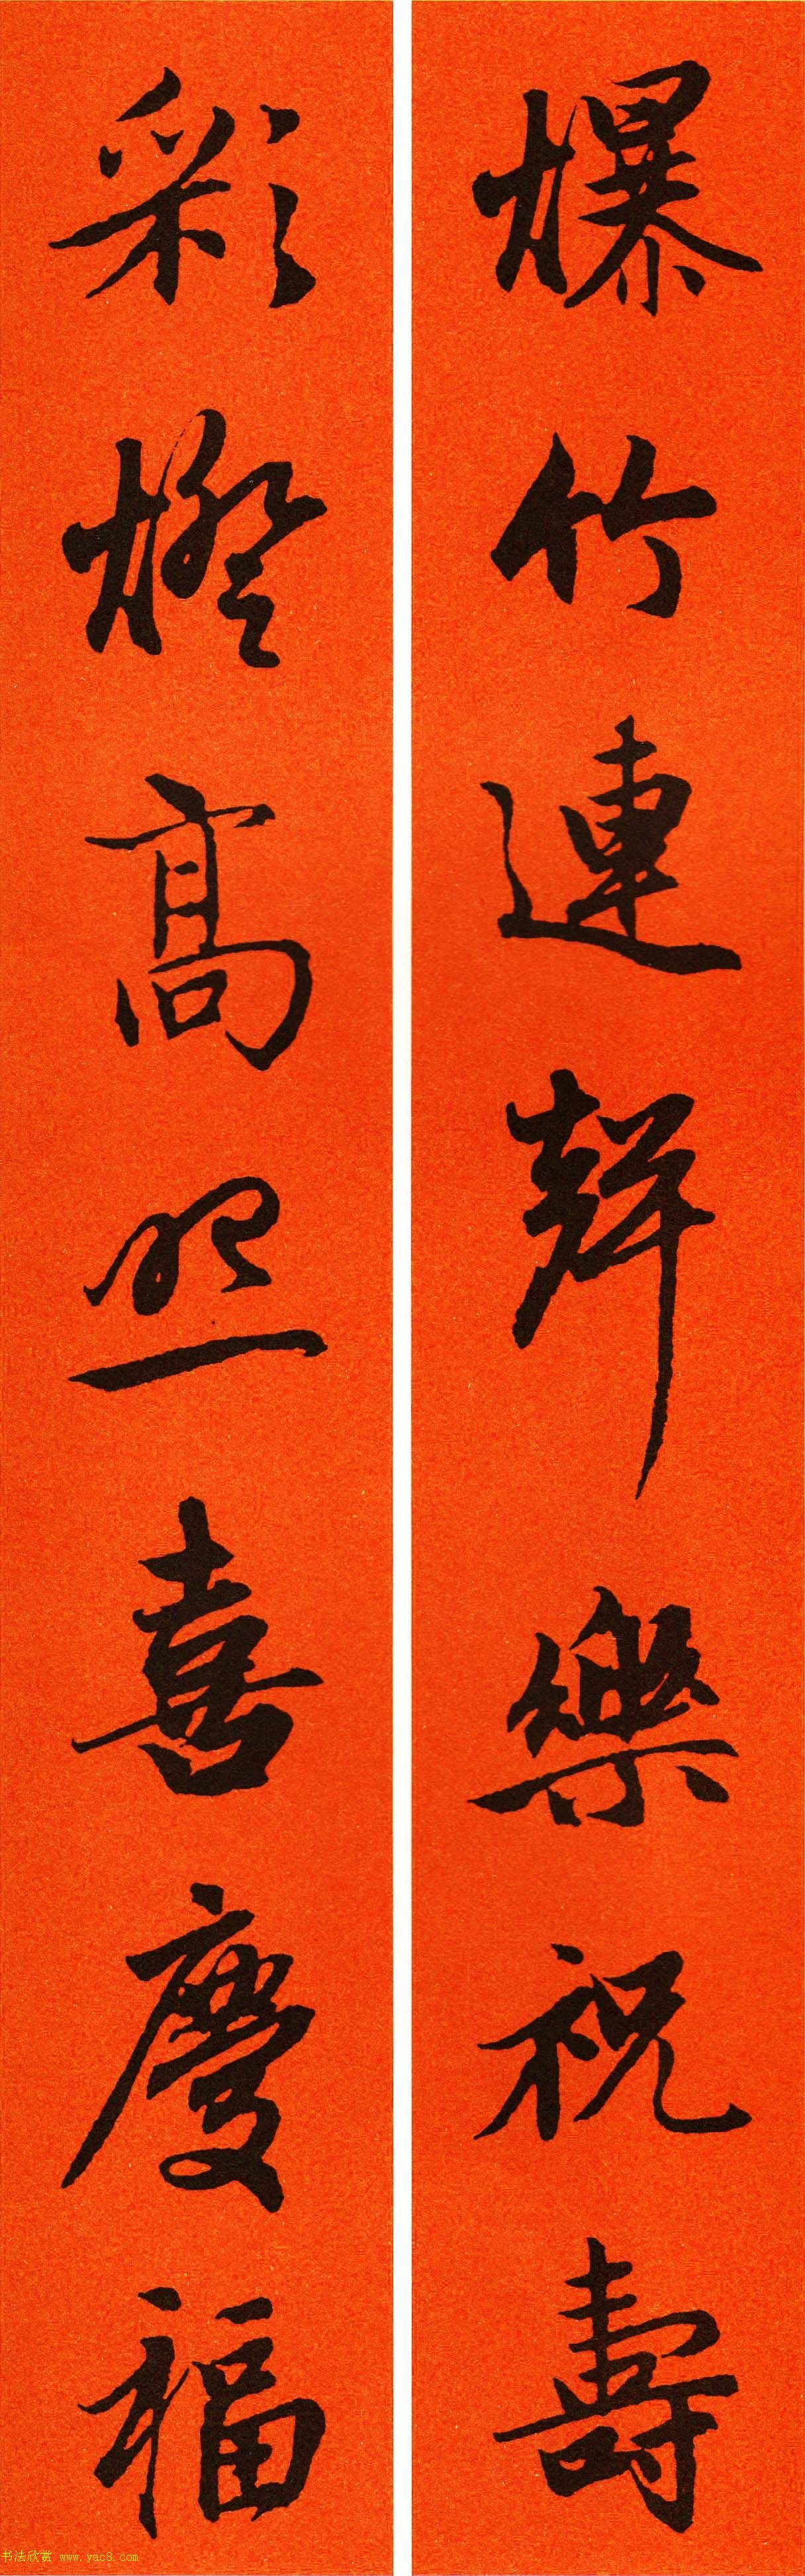 爆竹連聲樂祝壽
彩燈高照喜慶福
书法欣赏 www.yac8.com